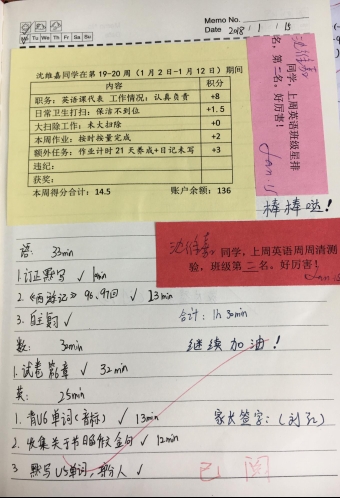 Memo No.
Mo Tu We Th Fr Sa Su
Date 2018 / 1 / 15
沈维嘉同学在第 19-20 周（1 月 2 日-1 月 12 日）期间
内容 积分
职务：英语课代表 工作情况：认真负责 +8
日常卫生打扫：保洁不到位 +1.5
大扫除工作：未大扫除 +0
本周作业：按时按量完成 +2
额外任务：作业计时 21 天养成+日记未写 +3
违纪：
获奖：
本周得分合计：14.5 账户余额：136
沈维嘉 同学，上周英语班级星排
名，第二名。好厉害！
Jan.15
棒棒哒！
沈维嘉 同学，上周英语周周清测
验，班级第二名。好厉害！
Jan.15
语： 33min
1.订正默写 √
2.《西游记》96、97回 √ 13min
3. 自主复习 √
合计：1h 30min
数： 32min
继续加油！
1.试卷第6章 √ 32min
英： 25min
1. 背U6单词(音标) √ 13min
家长签字：
2. 收集关于节日的作文金句 √ 12min
3 默写U5单词，部分人 √
已阅